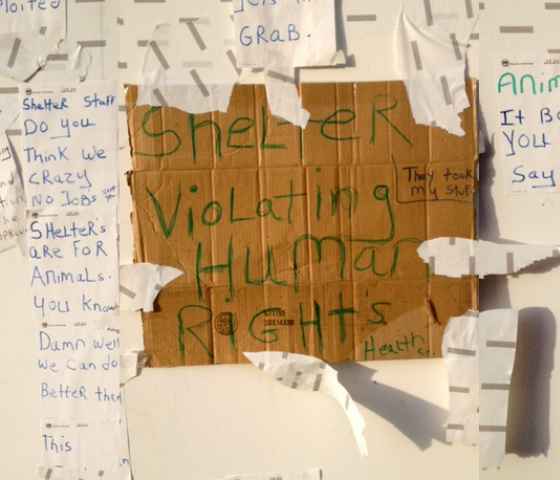 GRAB.
Shelter Stuff
Do you
Think we
CRazy
No JoBs
SHelteR's
aRe FoR
AnimaLs.
you Know
Damn Well
We Can do
BetteR then
This
SheLteR
They took
my stuff
VioLating
Human
RiGHt's
HeaLth
It
you
Say